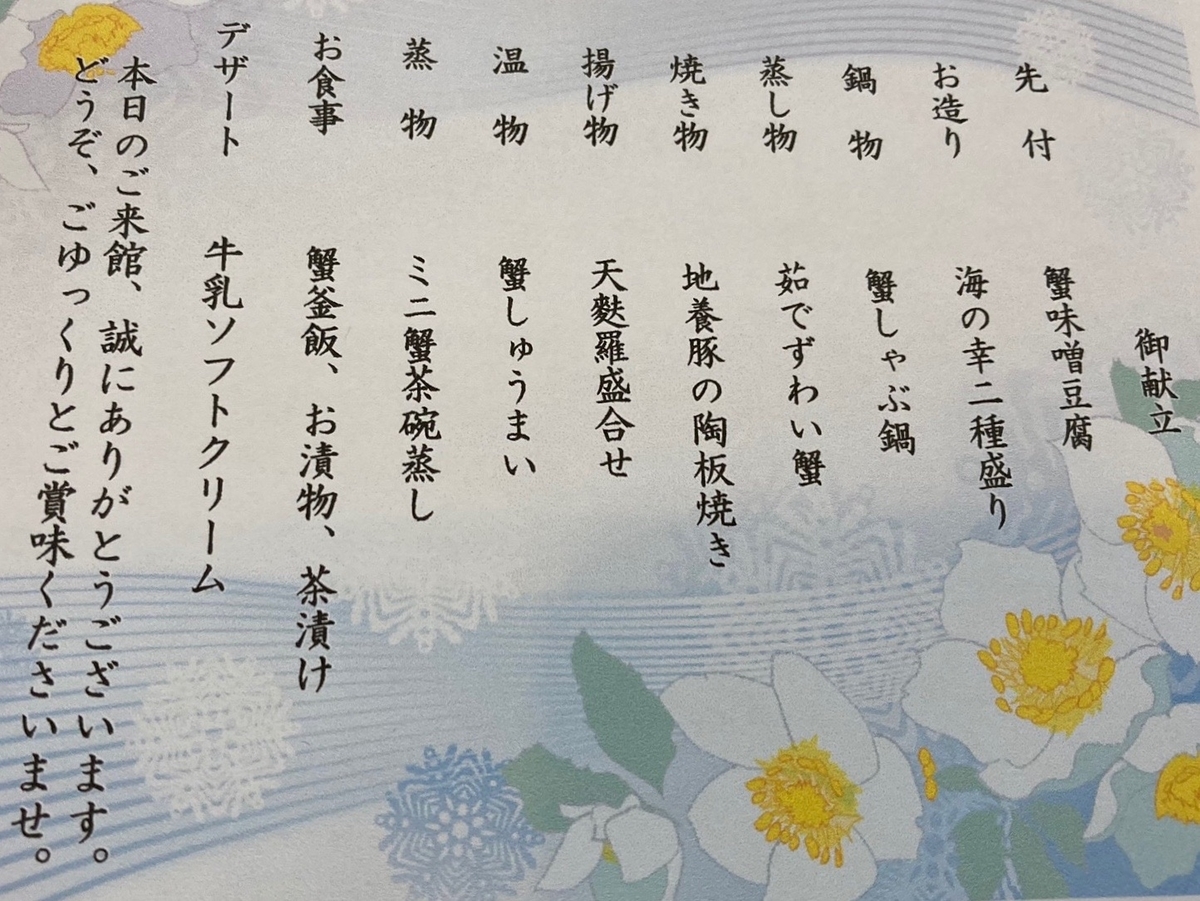 御献立
先付 蟹味噌豆腐
お造り 海の幸二種盛り
鍋物 蟹しゃぶ鍋
蒸し物 茹でずわい蟹
焼き物 地養豚の陶板焼き
揚げ物 天麩羅盛合せ
温物 蟹しゅうまい
蒸物 ミニ蟹茶碗蒸し
お食事 蟹釜飯、お漬物、茶漬け
デザート 牛乳ソフトクリーム
本日のご来館、誠にありがとうございます。
どうぞ、ごゆっくりとご賞味くださいませ。